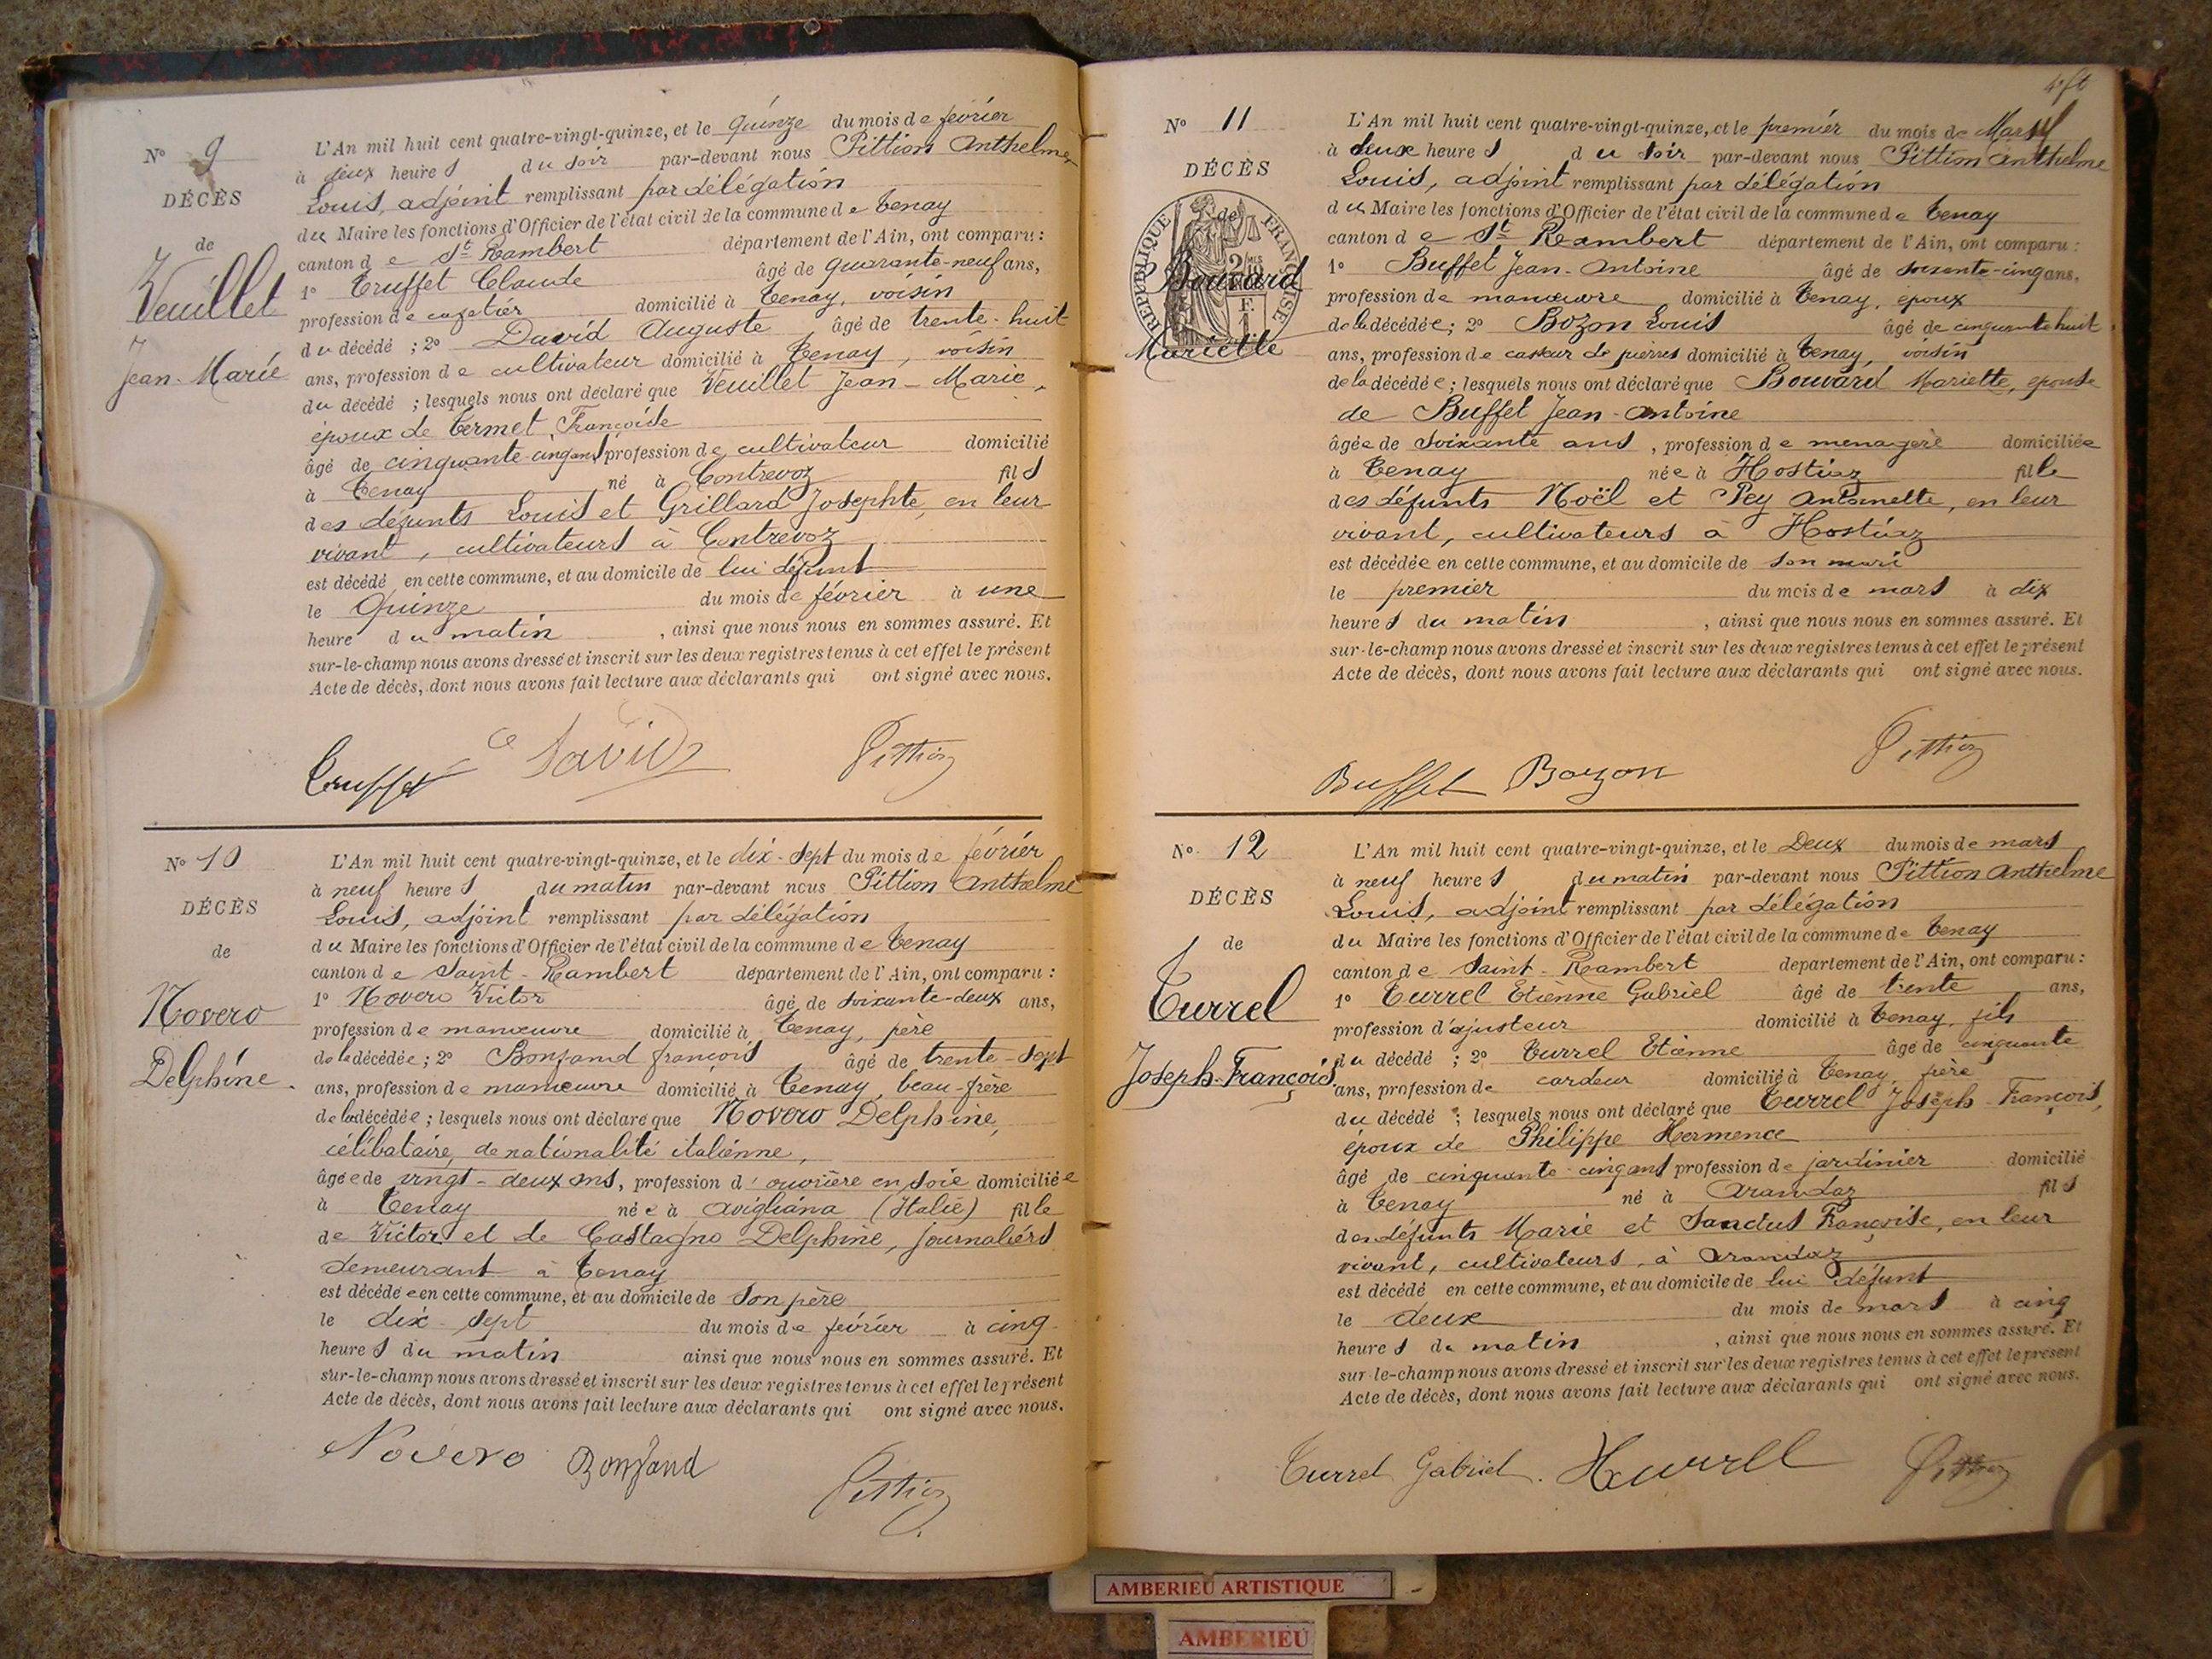 N° 9
DÉCÈS
de
Veuillet
Jean-Marie
L'An mil huit cent quatre-vingt-quinze, et le quinze du mois de février
à deux heures du soir par-devant nous Pittion Anthelme
Louis, adjoint remplissant par délégation
du Maire les fonctions d'Officier de l'état civil de la commune de Tenay
canton de St Rambert département de l'Ain, ont comparu :
1° Truffet Claude âgé de quarante-neuf ans,
profession de cafetier domicilié à Tenay, voisin
du décédé ; 2° David Auguste âgé de trente-huit
ans, profession de cultivateur domicilié à Tenay, voisin
du décédé ; lesquels nous ont déclaré que Veuillet Jean-Marie,
époux de Termet Françoise
âgé de cinquante-cinq ans profession de cultivateur domicilié
à Tenay né à Contrevoz fils
des défunts Louis et Grillard Josephte, en leur
vivant, cultivateurs à Contrevoz
est décédé en cette commune, et au domicile de lui défunt
le Quinze du mois de février à une
heure du matin , ainsi que nous nous en sommes assuré. Et
sur-le-champ nous avons dressé et inscrit sur les deux registres tenus à cet effet le présent
Acte de décès, dont nous avons fait lecture aux déclarants qui ont signé avec nous.
Truffet David Pittion
N° 10
DÉCÈS
de
Novero
Delphine
L'An mil huit cent quatre-vingt-quinze, et le dix-sept du mois de février
à neuf heures du matin par-devant nous Pittion Anthelme
Louis, adjoint remplissant par délégation
du Maire les fonctions d'Officier de l'état civil de la commune de Tenay
canton de Saint-Rambert département de l'Ain, ont comparu :
1° Novero Victor âgé de soixante-deux ans,
profession de manœuvre domicilié à Tenay, père
de la décédée ; 2° Bonfand françois âgé de trente-sept
ans, profession de manœuvre domicilié à Tenay, beau-frère
de la décédée ; lesquels nous ont déclaré que Novero Delphine,
célibataire, de nationalité italienne,
âgée de vingt-deux ans, profession d'ouvrière en soie domiciliée
à Tenay née à Avigliana (Italie) fille
de Victor et de Castagno Delphine, journaliers
demeurant à Tenay
est décédée en cette commune, et au domicile de son père
le dix-sept du mois de février à cinq
heures du matin ainsi que nous nous en sommes assuré. Et
sur-le-champ nous avons dressé et inscrit sur les deux registres tenus à cet effet le présent
Acte de décès, dont nous avons fait lecture aux déclarants qui ont signé avec nous.
Novero Bonfand Pittion
N° 11
DÉCÈS
de
RÉPUBLIQUE FRANÇAISE
Bouvard
Mariette
L'An mil huit cent quatre-vingt-quinze, et le premier du mois de Mars
à deux heures du soir par-devant nous Pittion Anthelme
Louis, adjoint remplissant par délégation
du Maire les fonctions d'Officier de l'état civil de la commune de Tenay
canton de St Rambert département de l'Ain, ont comparu :
1° Buffet Jean-Antoine âgé de soixante-cinq ans,
profession de manœuvre domicilié à Tenay, époux
de la décédée ; 2° Bozon Louis âgé de cinquante huit
ans, profession de casseur de pierres domicilié à Tenay, voisin
de la décédée ; lesquels nous ont déclaré que Bouvard Mariette, epouse
de Buffet Jean-Antoine
âgée de soixante ans , profession de menagere domiciliée
à Tenay née à Hostiaz fille
des défunts Noël et Pey Antoinette, en leur
vivant, cultivateurs à Hostiaz
est décédée en cette commune, et au domicile de son mari
le premier du mois de mars à dix
heures du matin , ainsi que nous nous en sommes assuré. Et
sur-le-champ nous avons dressé et inscrit sur les deux registres tenus à cet effet le présent
Acte de décès, dont nous avons fait lecture aux déclarants qui ont signé avec nous.
Buffet Bozon Pittion
N° 12
DÉCÈS
de
Turrel
Joseph-François
L'An mil huit cent quatre-vingt-quinze, et le Deux du mois de mars
à neuf heures du matin par-devant nous Pittion Anthelme
Louis, adjoint remplissant par délégation
du Maire les fonctions d'Officier de l'état civil de la commune de Tenay
canton de Saint-Rambert département de l'Ain, ont comparu :
1° Turrel Etienne Gabriel âgé de trente ans,
profession d'ajusteur domicilié à Tenay, fils
du décédé ; 2° Turrel Etienne âgé de cinquante
ans, profession de cardeur domicilié à Tenay frère
du décédé ; lesquels nous ont déclaré que Turrel Joseph-François,
époux de Philippe Hermence
âgé de cinquante-cinq ans profession de jardinier domicilié
à Tenay né à Arandaz fils
des défunts Marie et Sandus Françoise, en leur
vivant, cultivateurs, à Arandaz
est décédé en cette commune, et au domicile de lui défunt
le deux du mois de mars à cinq
heures du matin , ainsi que nous nous en sommes assuré. Et
sur-le-champ nous avons dressé et inscrit sur les deux registres tenus à cet effet le présent
Acte de décès, dont nous avons fait lecture aux déclarants qui ont signé avec nous.
Turrel Gabriel. Pittion
AMBERIEU ARTISTIQUE
AMBERIEU